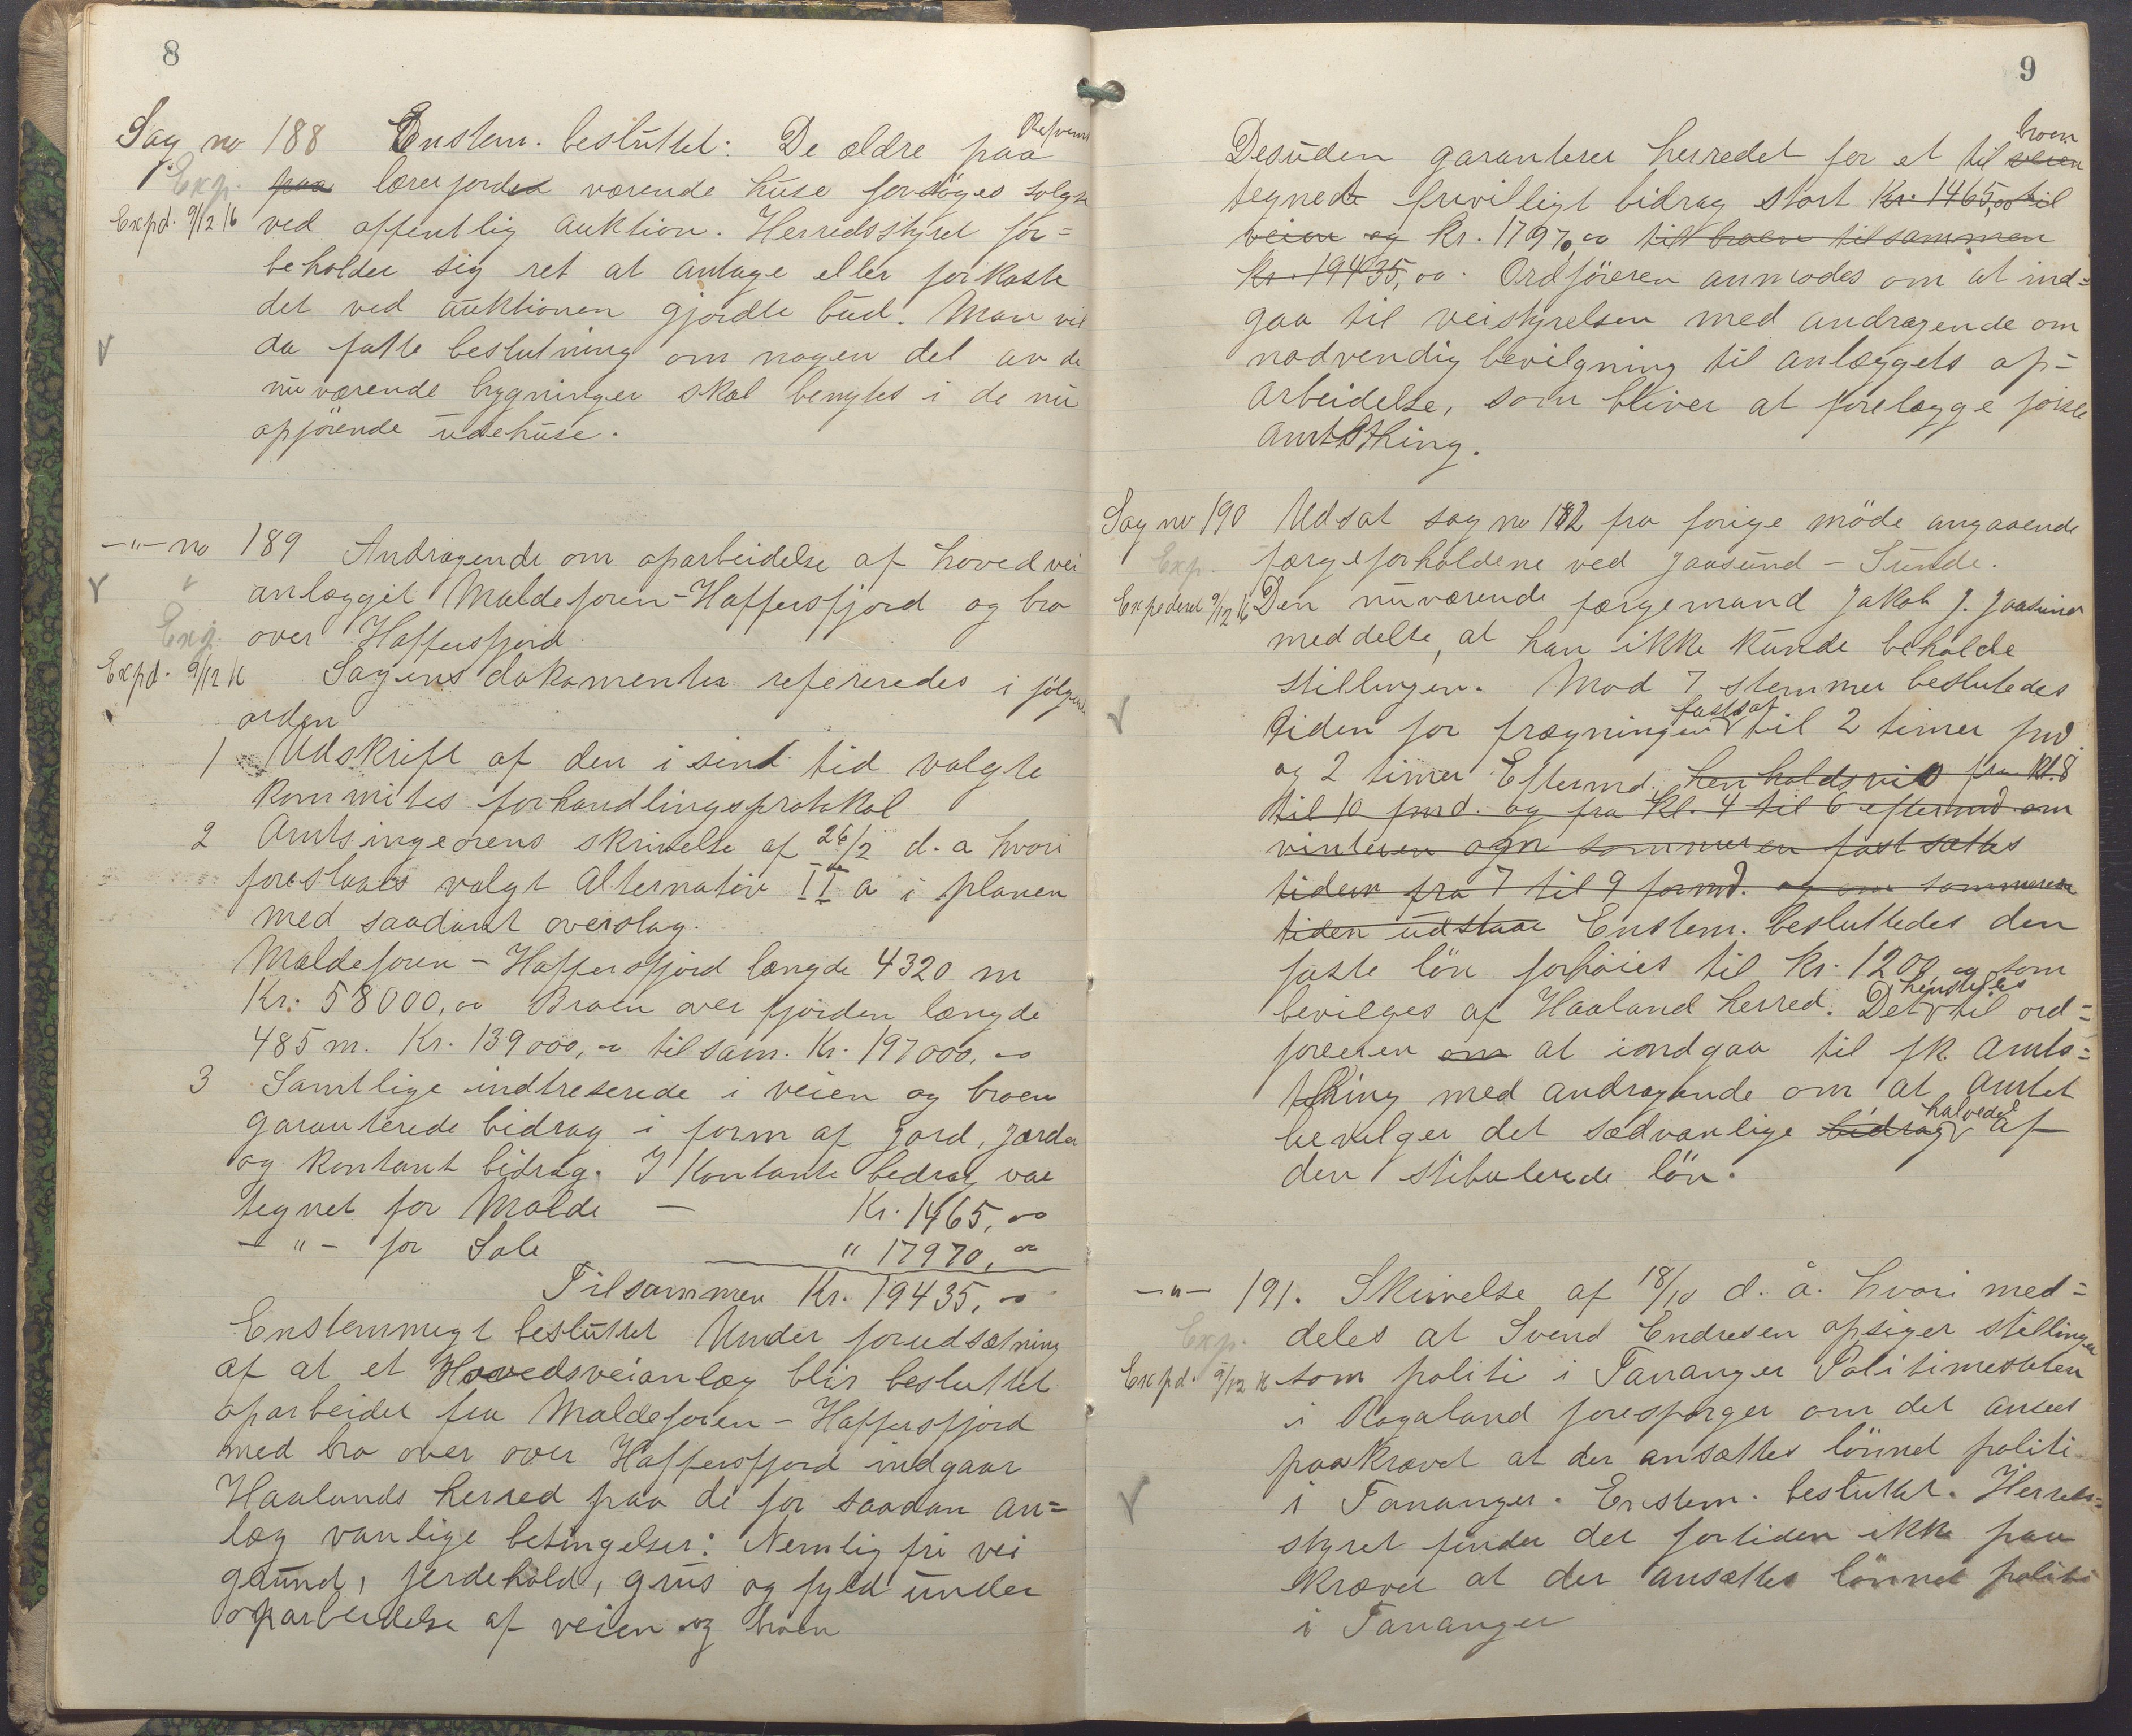 8
Sag no 188 Enstem. besluttet: De ældre paa Refsnes
Exp. paa lærerjorden værende huse forsøges solgte
Expd. 9/12 16 ved offentlig auktion. Herredsstyret for=
beholder sig ret at antage eller forkaste
det ved auktionen gjordte bud. Man vil
da fatte beslutning om nogen del av de
nuværende bygninger skal benyttes i de nu
opførende udehuse.
-"- no 189 Andragende om oparbeidelse af hovedvei
anlægget Maldeforen - Haffersfjord og bro
Exp. over Haffersfjord.
Expd. 9/12 16 Sagens dokumenter refereredes i følgende
orden
1 Udskrift af den i sind tid valgte
Kommites forhandlingsprotokol
2 Amtsingeørens skrivelse af 26/2 d. a hvori
foreslaaes valgt Alternativ II a i planen
med saadant overslag.
Maldeforen - Haffersfjord længde 4320 m
Kr. 58000,00 Broen over fjorden længde
485 m. Kr. 139000,00 tilsam. Kr. 197000,00
3 Samtlige indtreserede i veien og broen
garanterede bidrag i form af jord, gjærder
og kontant bidrag. I Kontante bedrag var
tegnet for Malde — Kr. 1465,00
- " - for Sole " 17970,00
Tilsammen Kr. 19435,00
Enstemmigt besluttet Under forudsætning
af at et Hovedsveianlæg blir besluttet
oparbeidet fra Maldeforen - Haffersfjord
med bro over over Haffersfjord indgaar
Haalands herred paa de for saadan an=
læg vanlige betingelser: Nemlig fri vei
grund, jerdehold, grus og fyld under
oparbeidelse af veien og broen
9
Desuden garanterer herredet for et til veien broen
tegnede frivilligt bidrag stort Kr. 1465,00 til
veien og kr. 17970,00 till broen tilsammen
kr. 19435,00. Ordføreren anmodes om at ind=
gaa til veistyrelsen med andragende om
nødvendig bevilgning til anlæggets op=
arbeidelse, som bliver at forelægge første
Amtsthing.
Sag no 190 Udsat sag no 182 fra forige møde angaaende
Exp. færgeforholdene ved Jaasund - Sunde.
Expederet 9/12 16 Den nuværende færgemand Jakob J. Jaasund
meddelte, at han ikke kunde beholde
stillingen. Mod 7 stemmer besluttedes
tiden for frægningen fastsat til 2 timer fmd
og 2 timer Eftermd. henholdsvis fra kl. 8
til 10 fmd. og fra kl. 4 til 6 eftermd. om
vinteren og om sommeren fastsættes
tiden fra 7 til 9 formd. og om sommeren
tiden udstaae Enstem. besluttedes den
faste løn forhøies til kr. 1200, og som
bevilges af Haaland herred. Det henstilles til ord=
føreren om at indgaa til fk. Amts=
thing med andragende om at Amtet
bevelger det sædvanlige bidrag halvedel af
den stibulerede løn.
-"- 191. Skrivelse af 18/10 d. å. hvori med=
Exp. deles at Svend Endresen opsiger stillingen
Expd. 9/12 16 som politi i Tananger Politimesteren
i Rogaland forespørger om det ansees
paakrævet at der ansættes lønnet politi
i Tananger. Enstem. besluttet. Herreds=
styret finder det fortiden ikke paa
krævet at der ansættes lønnet politi
i Tananger